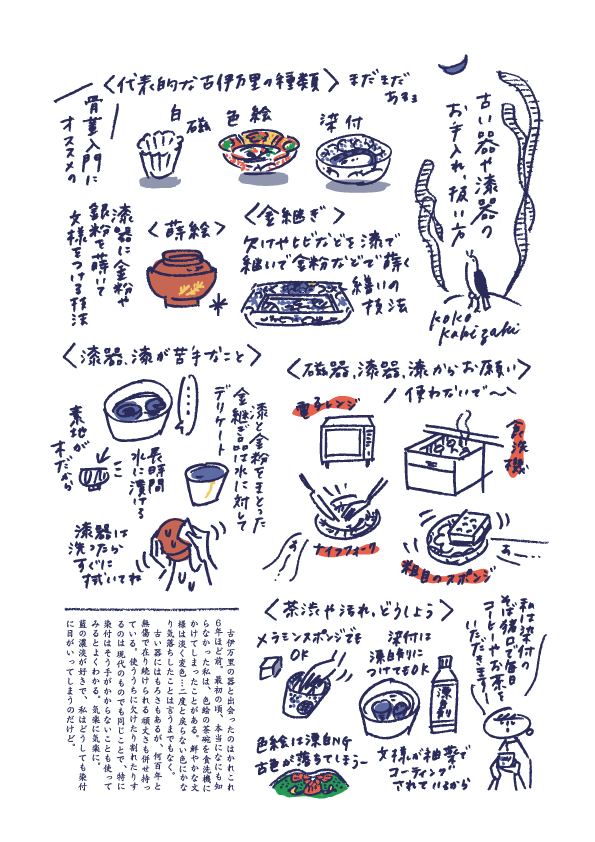 古い器や漆器の
お手入れ、扱い方
koko
kakizaki
〈代表的な古伊万里の種類〉
まだまだ
あるョ
骨董入門に
オススメの
白磁
色絵
染付
〈金継ぎ〉
欠けやヒビなどを漆で
継いで金粉などで蒔く
繕いの
技法
〈蒔絵〉
漆器に金粉や
銀粉を蒔いて
文様をつける技法
〈漆器、漆が苦手なこと〉
漆と金粉をまとった
金継ぎ品は水に対して
デリケート
長時間
水に漬ける
素地が
木だから
漆器は
洗ったら
すぐに
拭いてね
〈磁器、漆器、漆からお願い〉
使わないで〜
電子レンジ
食洗機
ナイフフォーク
粗目のスポンジ
〈茶渋や汚れ、どうしよう〉
メラミンスポンジでも
OK
染付は
漂白剤に
つけてもOK
漂白剤
色絵は漂白NG
古色が落ちてしまうー
文様が釉薬で
コーティング
されているから
私は染付の
そば猪口で毎日
コーヒーやお茶を
いただきまーす
古伊万里の器と出会ったのはかれこれ
6年ほど前。最初の頃、本当になにも知
らなかった私は、色絵の茶碗を食洗機に
かけてしまったことがある。鮮やかな文
様は淡く変色…二度と戻らない色にかな
り気落ちしたことは言うまでもなく。
古い器にはもろさもあるが、何百年と
無傷で在り続けられる頑丈さも併せ持っ
ている。使ううちに欠けたり割れたりす
るのは現代のものでも同じことで、特に
染付はそう手がかからないことも使って
みるとよくわかる。気楽に気楽に。
藍の濃淡が好きで、私はどうしても染付
に目がいってしまうのだけど。